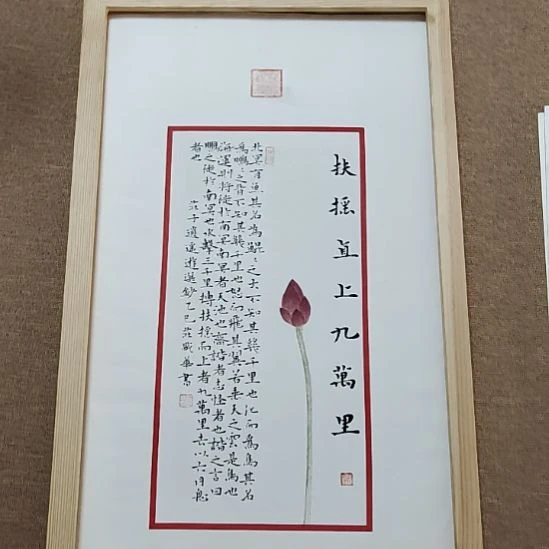 扶搖直上九萬里
北冥有魚其名為鯤〻之大不知其幾千里也化而為鳥其名
為鵬〻之背不知其幾千里也怒而飛其翼若垂天之雲是鳥也
海運則將徙於南冥南冥者天池也齊諧者志怪者也諧之言曰
鵬之徙於南冥也水擊三千里摶扶搖而上者九萬里去以六月息
者也
莊子逍遙遊選鈔乙巳 書